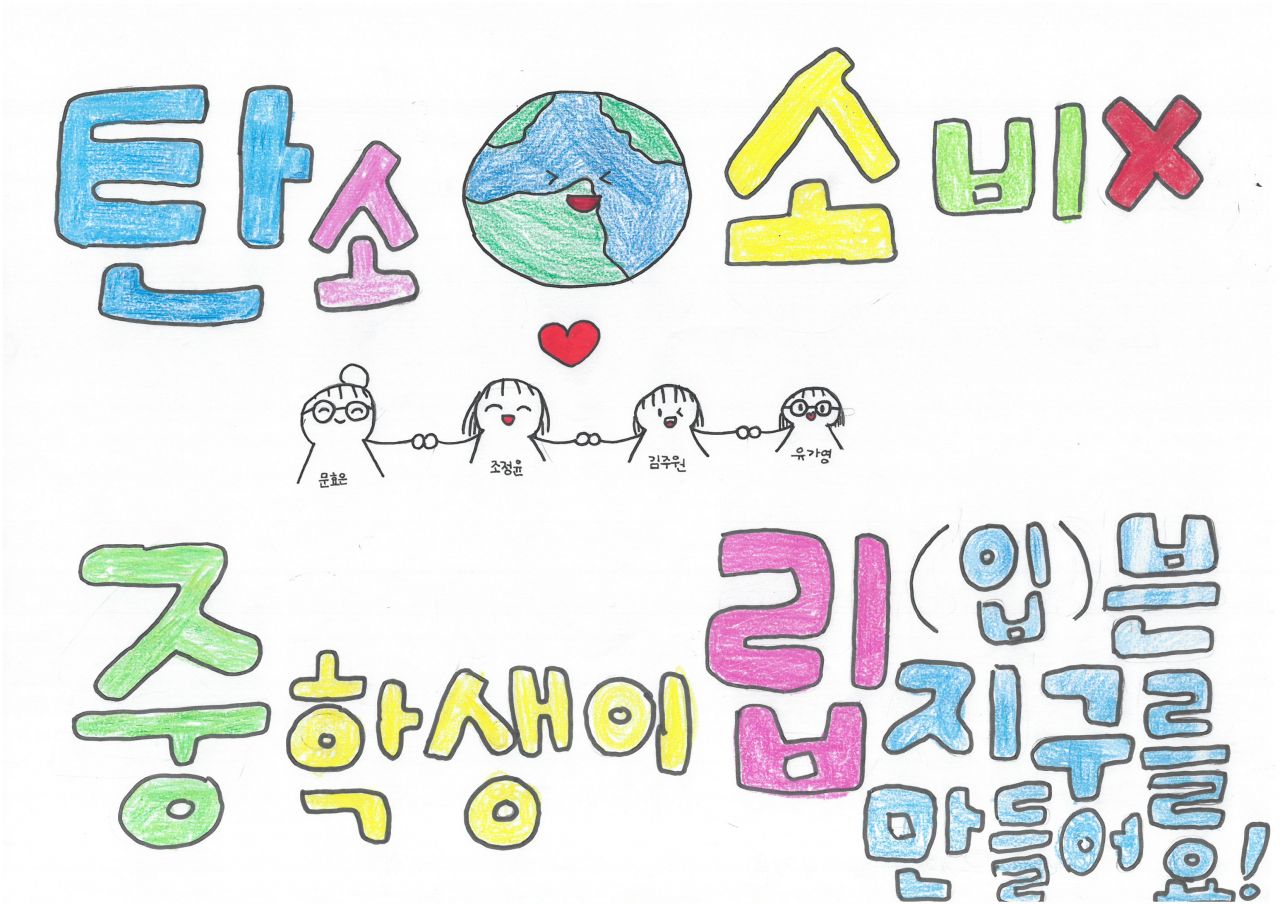 탄소 소비X
문효은 조정윤 김주원 유가영
중학생이 립(입)쁜
지구를
만들어요!